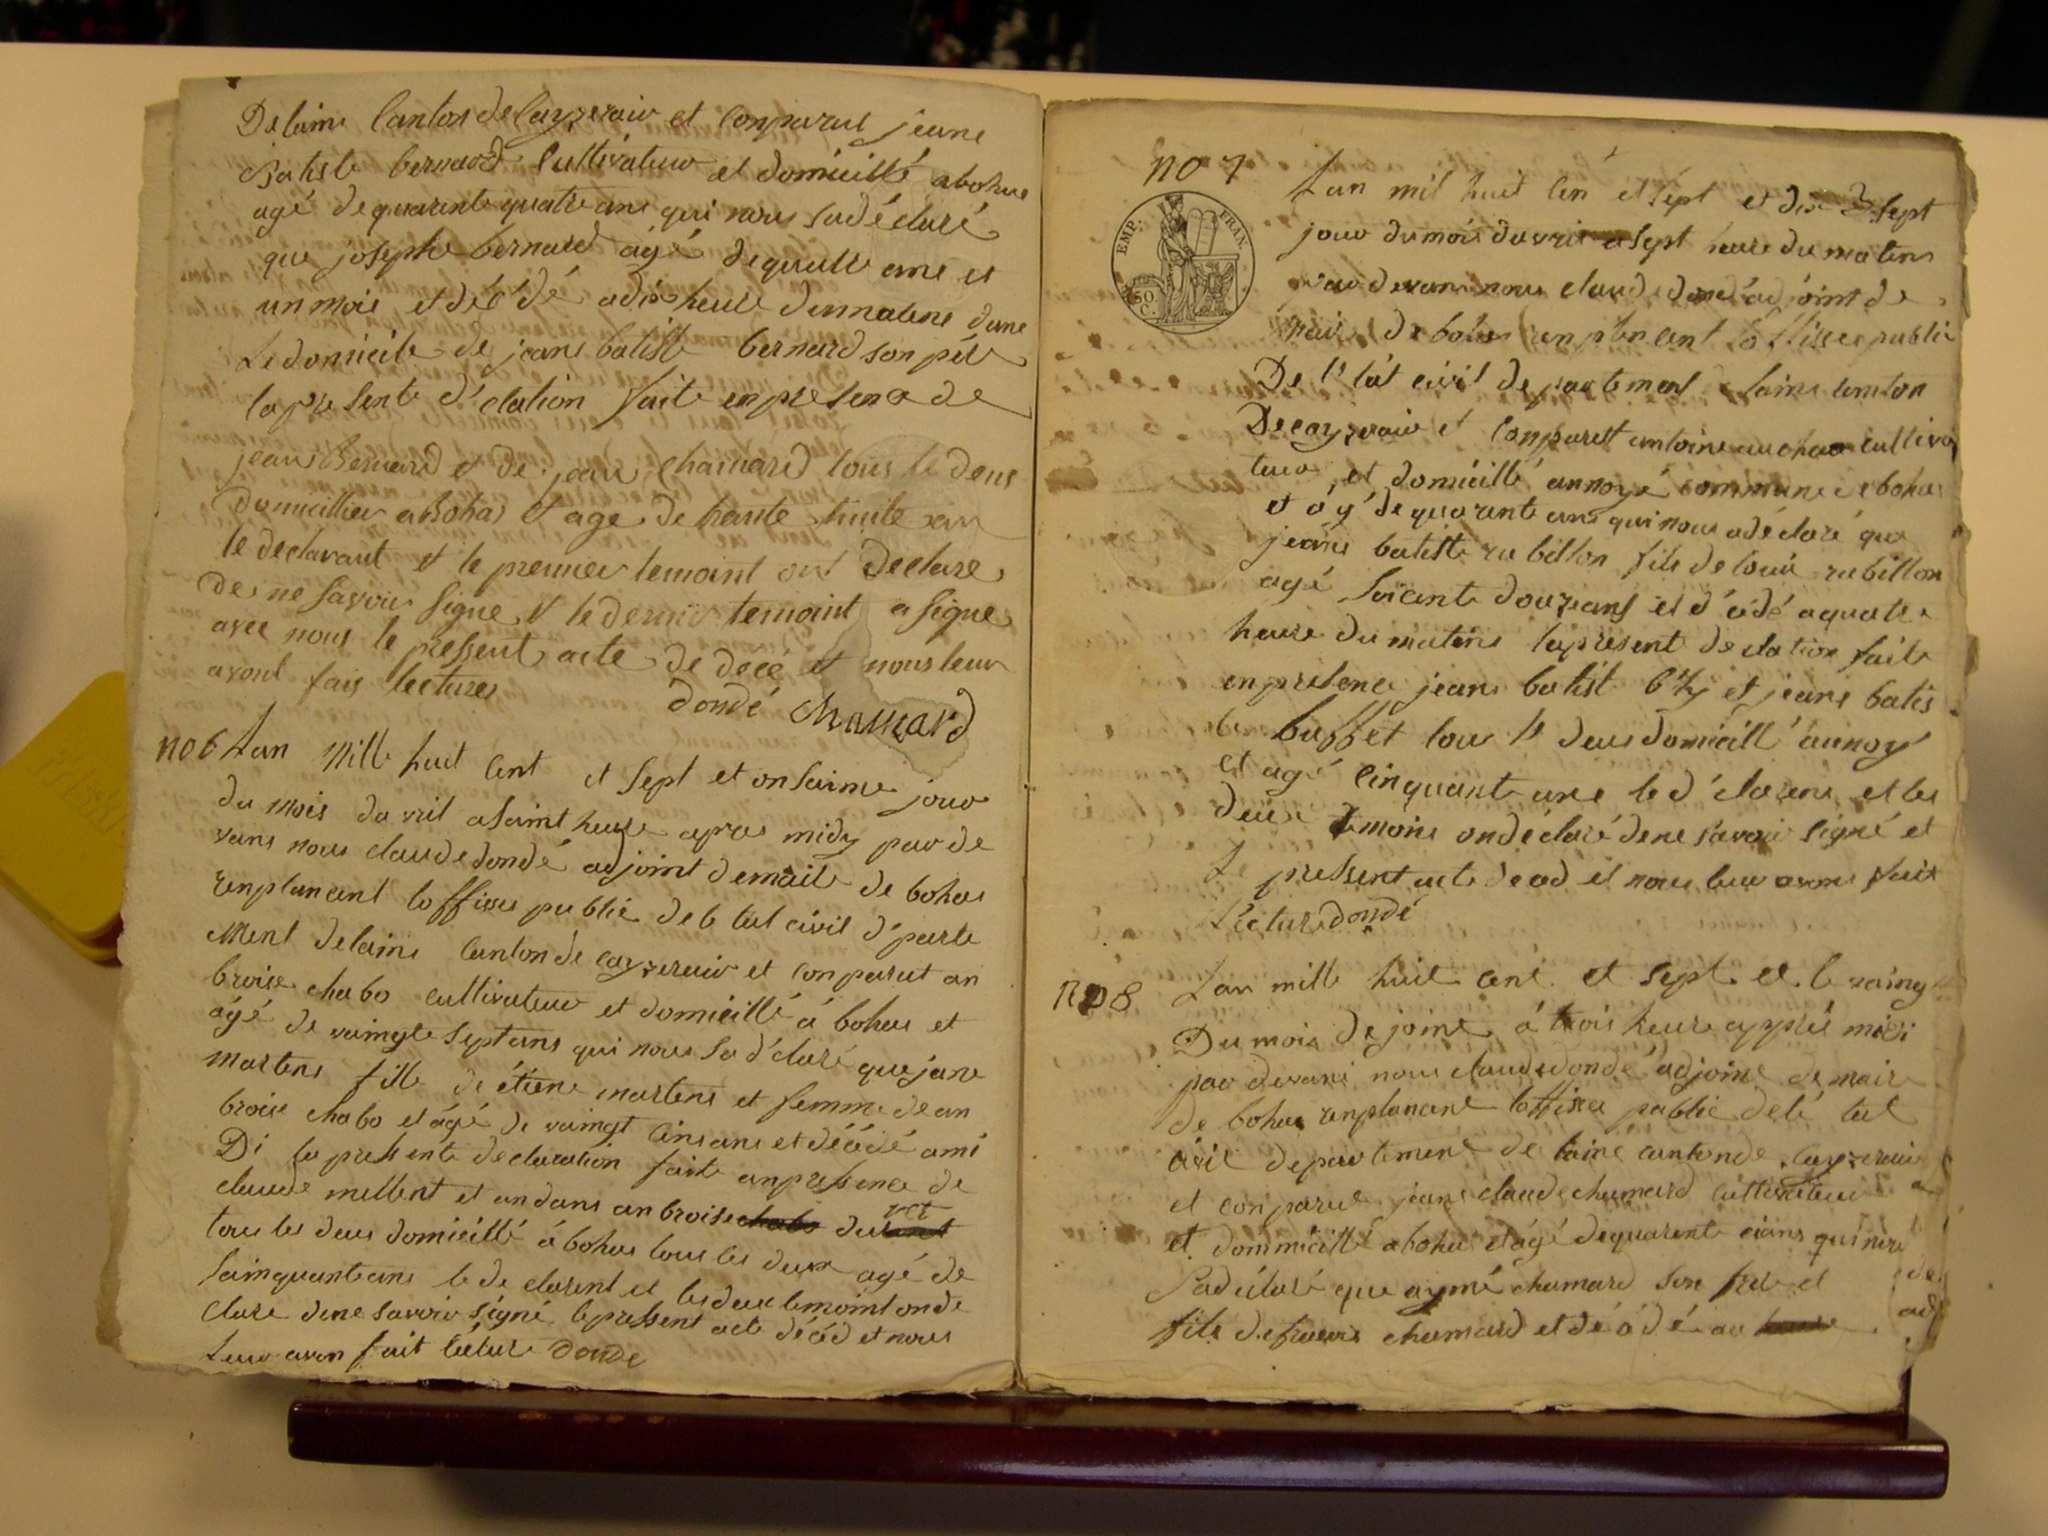 Delaine Canton de Cayzeraiv et Conparut jeane
Batiste bernard Cultivateur et domicillé abohas
agé de quarente quatre ans qui nous sa déclaré
que joseph bernard agé de quatre ans et
un mois et décédé a dix heure dumatens dans
Le domicile de jeans batiste bernard son père
la presente d'clation fait en presence de
jean Bernard et de jean chamard tous le deus
Domicillier a Bohas et age de trante huite an
le declarant et le premier temoint ont Declare
de ne savoir signe et le dernier temoint a signe
avec nous le present acte de decé et nous leur
avont fais lectures
dondé chamard
no 6 Lan Mille huit Cent et sept et onsaime jour
du mois davril a saint heure apres midy par de
vans nous claude dondé adjoint demaile de bohas
renplanant loffisie public de le tat civil d'parte
ment delaine Canton de cayzeraiv et Conparut an
broise chabo cultivateur et domicillé á bohas et
ágé de vaingte sept ans qui nous sa d'claré que jane
martens fille de étiene martens et femme de an
broise chabo et ágé de vaingt cins ans et décédé ami
Di la presente declaration fait anpresence de
claude millent et an dans anbroise chabo du
tous les deus domicillé á bohas tous les deux agé de
sainquante ans le de clarent et les deux temoint onde
clare dene savoir signé le present acte décéd et nous
Leur avon fait lectur Donde
no 7 Lan mil huit cen et sept et dix sept
jour du mois davril a sept heure du matens
par devans nous claude dondé adjoint de
maire de bohas renplancent loffisie public
De l'tat civil de partement laine canton
De cayzeraiv et Conparut antoine cultiva
teur et domicillé annoyé commune de bohas
et ágé de quarente ans qui nous a déclaré que
jeans batiste rabillon fils de louis rabillon
agé soicente douze ans et décédé a quatre
heure du matens lapresent declation faite
enpresence jeans batist et jeans batis
te buffet tous l deus domicill' annoy
et agé Cinquante ans le d'clarens et les
deux temoins ondéclaré dene savoir signé et
Le pressent acte decéd et nous leur avons fait
Lectur dondé
EMP. FRAN.
50 C.
no 8 Lan mille huit cent et sept et le vaingt
Du mois de joint á trois heure apprès midi
par devans nous claude dondé adjoint de maire
de bohas renplanant loffisie public delé tat
civil departement de laine canton de Cayzeraiv
et conparut jeans claude chamard cultivateur
et dommicillé abohas et ágé de quarente cians qui nous
sa déclaré que aymé chamard son frer et
fils de franuis chamard et décédé au heure